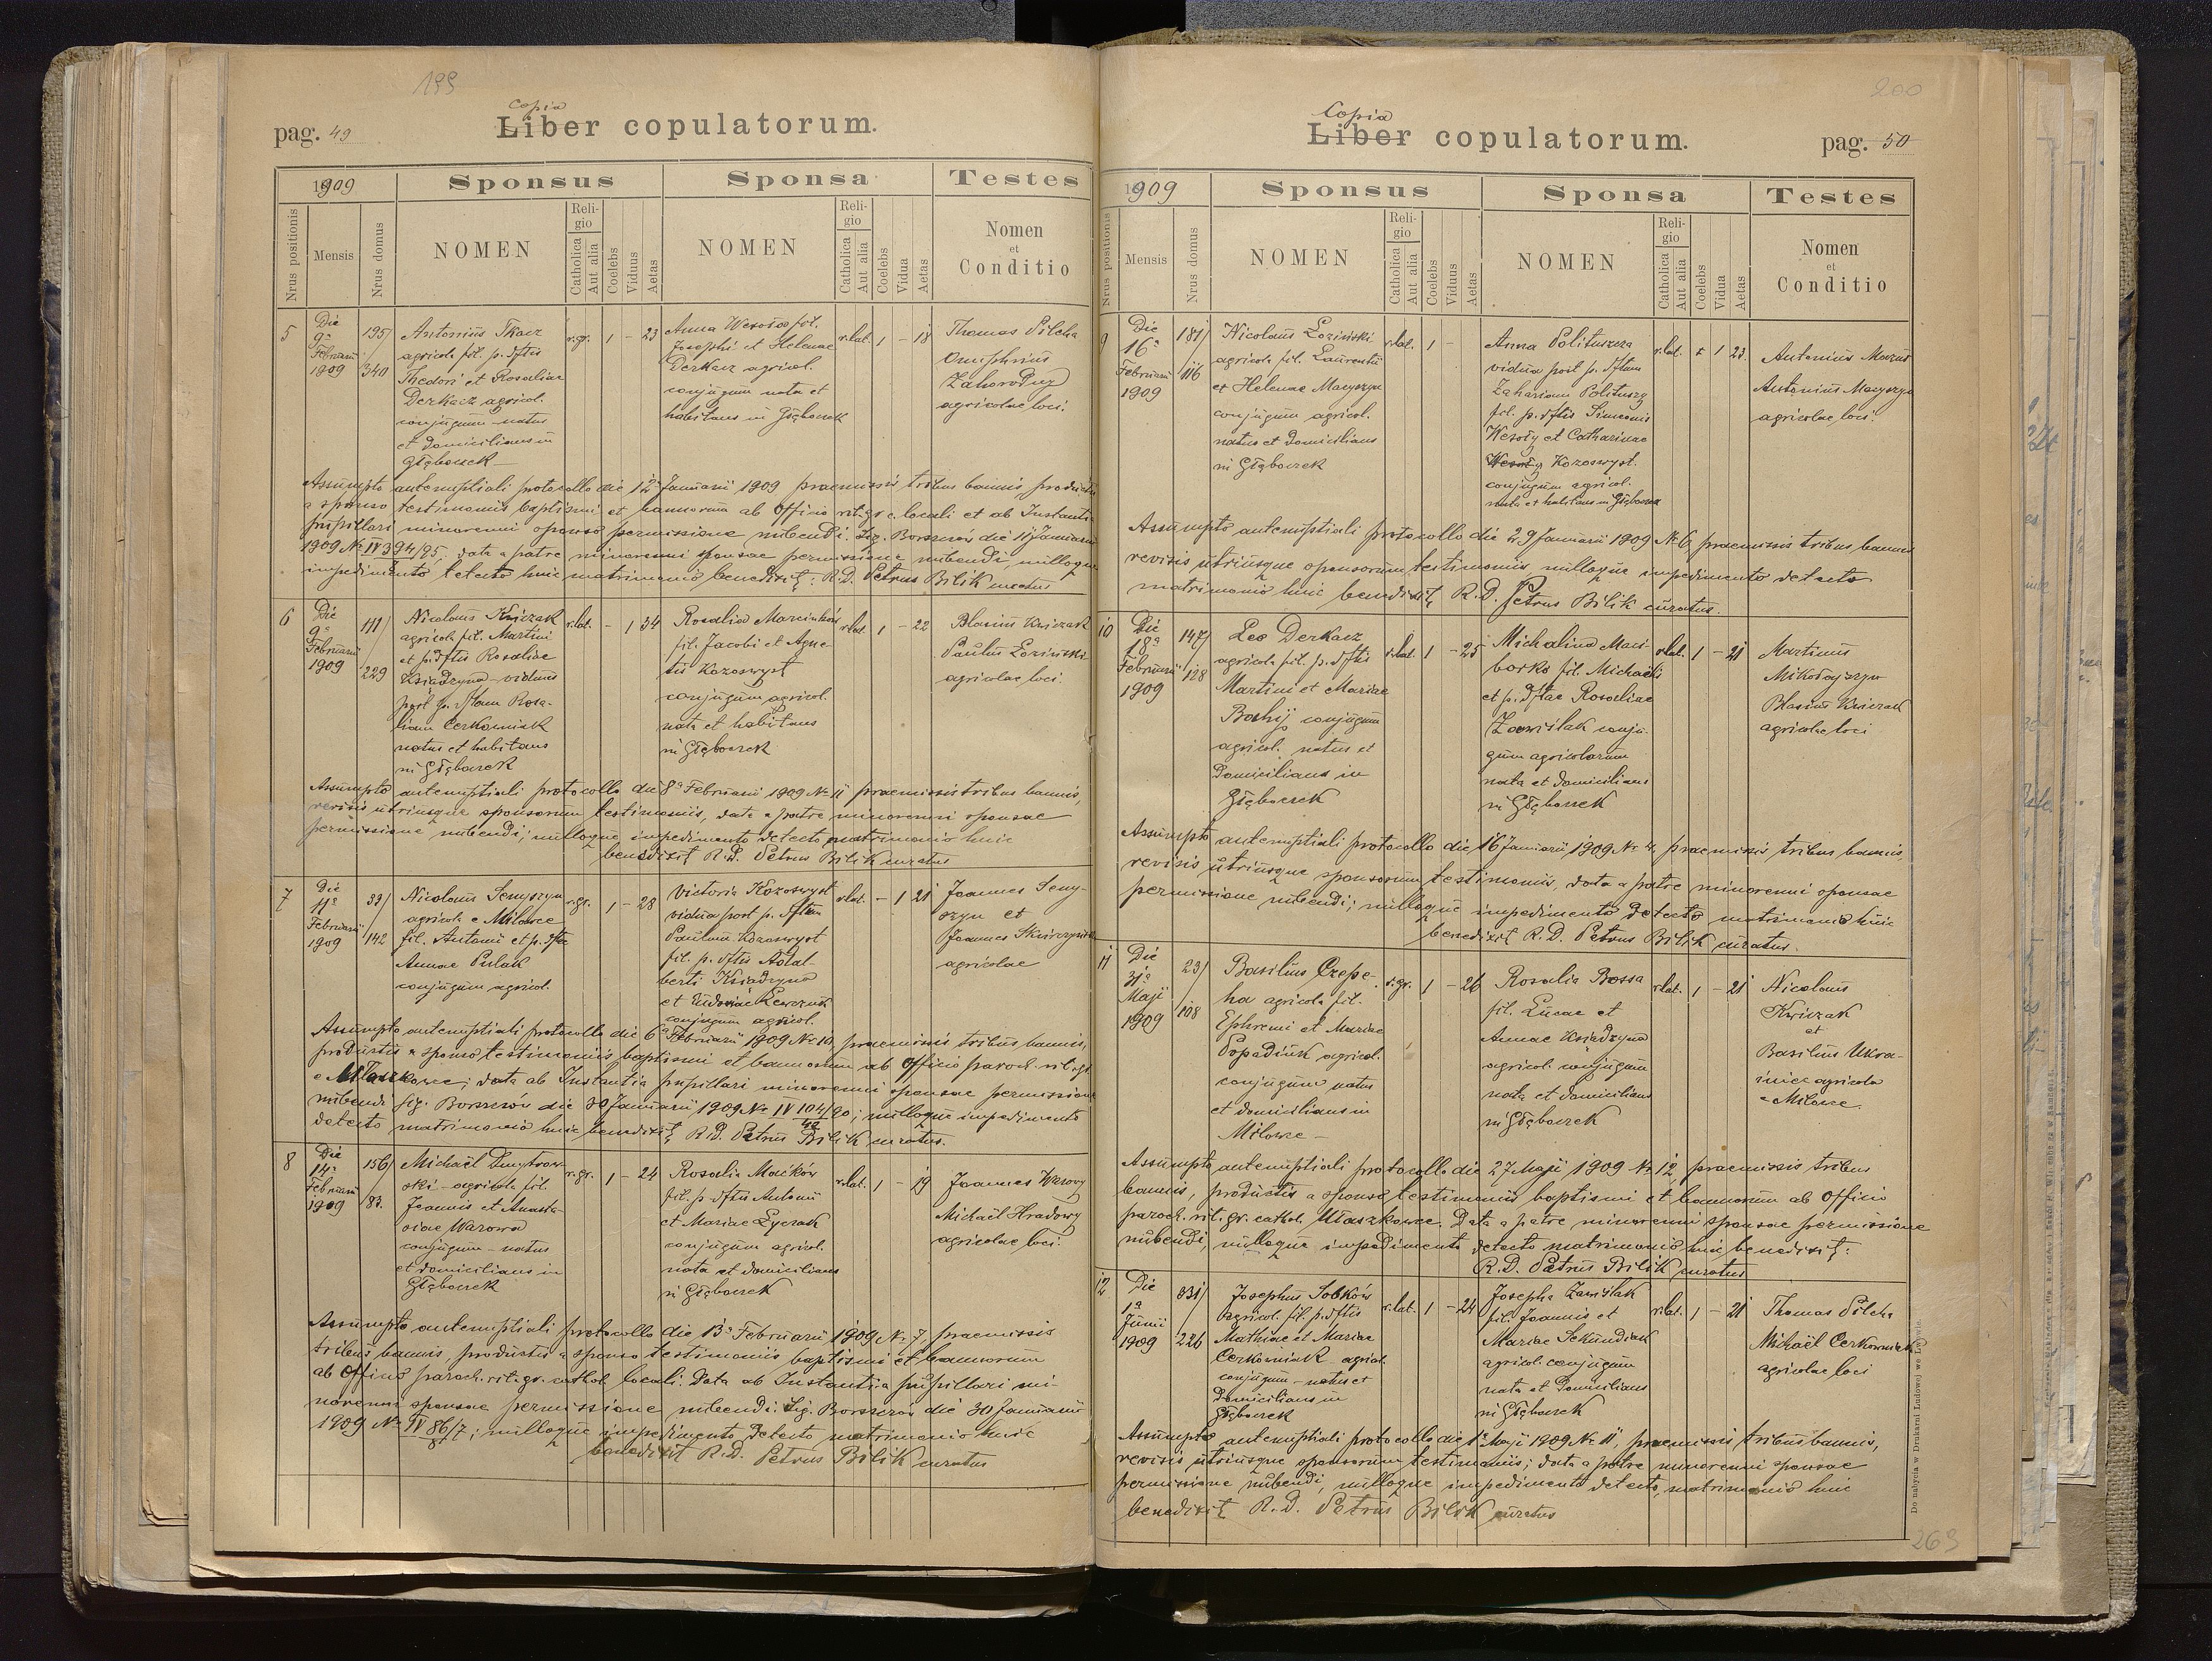 199
pag. 49
Copia
Liber copulatorum.
1909
Sponsus
Sponsa
Testes
Nrus positionis
Mensis
Nrus domus
NOMEN
Religio
Catholica
Aut alia
Coelebs
Viduus
Aetas
NOMEN
Religio
Catholica
Aut alia
Coelebs
Vidua
Aetas
Nomen
et
Conditio
5
Die
9a
Februarii
1909
195/
340
Antonius Tkacz
agricola fil. p. dftis
Thedori et Rosaliae
Derkacz agricol.
conjugum natus
et domicilians in
Głęboczek
r.gr. 1 - 23
Anna Wesoła fil.
Josephi et Helenae
Derkacz agricol.
conjugum nata et
habitans in Głęboczek
r.lat. 1 - 18
Thomas Pilcha
Onuphrius
Zahorodny
agricolae loci.
Assumpto antenuptiali protocollo die 12 Januarii 1909 praemissis tribus bannis, productis
a sponso testimoniis baptismi et bannorum ab Officio rit. gr. c. locali et ab Instantia
pupillari minorenni sponso permissione nubendi. Sig. Borszczów die 11 Januarii
1909 No IV 394/95; data a patre minorenni sponsae permissione nubendi, nulloque
impedimento detecto huic matrimonio benedixit: R.D. Petrus Bilik curatus
6
Die
9a
Februarii
1909
111/
229
Nicolaus Kwiczak
agricola fil. Martini
et p. dftis Rosaliae
Książyna viduus
post p. dftam Rosa-
liam Cerkowniak
natus et habitans
in Głęboczek
r.lat. - 1 34
Rosalia Marcinków
fil. Jacobi et Agne-
tis Kozoswyst
conjugum agricol.
nata et habitans
in Głęboczek
r.lat. 1 - 22
Blasius Kwiczak
Paulus Łoziński
agricolae loci.
Assumpto antenuptiali protocollo die 8a Februarii 1909 No 11 praemissis tribus bannis,
revisis utriusque sponsorum testimoniis, data a patre minorenni sponsae
permissione nubendi; nulloque impedimento detecto matrimonio huic
benedixit R.D. Petrus Bilik curatus
7
Die
11a
Februarii
1909
33/
142
Nicolaus Semyszyn
agricola e Milowce
fil. Antonii et p. dftae
Annae Pulak
conjugum agricol.
r.gr. 1 - 28
Victoria Kozoswyst
vidua post p. dftam
Paulum Kozoswyst
fil. p. dftis Adal-
berti Ksiądzyna
et Ludovicae Lewczuk
conjugum agricol.
r.lat. - 1 21
Joannes Semy-
szyn et
Joannes Skwirzyński
agricolae
Assumpto antenuptiali protocollo die 6a Februarii 1909 No 10, praemissis tribus bannis,
productis a sponso testimoniis baptismi et bannorum ab Officio paroch. rit. gr.
e Ułaszkowce; data ab Instantia pupillari minorenni sponsae permissione
nubendi sig. Borszczów die 30 Januarii 1909 No IV 104/90; nulloque impedimento
detecto matrimonio huic benedixit R.D. Petrus Bilik curatus.
8
Die
14a
Februarii
1909
156/
83.
Michaël Dmytrow-
ski agricola fil.
Joannis et Anasta-
siae Warowa
conjugum natus
et domicilians in
Głęboczek
r.gr. 1 - 24
Rosalia Maćków
fil. p. dftis Antonii
et Mariae Łyczak
conjugum agricol.
nata et domicilians
in Głęboczek
r.lat. 1 - 19
Joannes Warowy
Michaël Hradowy
agricolae loci.
Assumpto antenuptiali protocollo die 13a Februarii 1909 No 7, praemissis
tribus bannis, productis a sponso testimoniis baptismi et bannorum
ab Officio paroch. rit. gr. cathol. locali. Data ab Instantia pupillari mi-
norenni sponsae permissione nubendi. Sig. Borszczów die 30 Januarii
1909 No IV 86/7; nulloque impedimento detecto matrimonio huic
benedixit R.D. Petrus Bilik curatus
200
Copia
Liber copulatorum.
pag. 50
1909
Sponsus
Sponsa
Testes
Nrus positionis
Mensis
Nrus domus
NOMEN
Religio
Catholica
Aut alia
Coelebs
Viduus
Aetas
NOMEN
Religio
Catholica
Aut alia
Coelebs
Vidua
Aetas
Nomen
et
Conditio
9
Die
16a
Februarii
1909
181/
116
Nicolaus Łoziński
agricola fil. Laurentii
et Helenae Macyszyn
conjugum agricol.
natus et domicilians
in Głęboczek
r.lat. 1 -
Anna Polituszcza
vidua post p. dftam
Zahariam Polituszy
fil. p. dftis Simeonis
Wesoły et Catharinae
Wesoły Kozoswyst.
conjugum agricol.
nata et habitans in Głęboczek
r.lat. 1 23
Antonius Mazur
Antonius Macyszyn
agricolae loci.
Assumpto antenuptiali protocollo die 29 Januarii 1909 No 6, praemissis tribus bannis
revisis utriusque sponsorum testimoniis, nulloque impedimento detecto
matrimonio huic benedixit R.D. Petrus Bilik curatus.
10
Die
18a
Februarii
1909
147/
128
Leo Derkacz
agricola fil. p. dftis
Martini et Mariae
Boshij conjugum
agricol. natus et
domicilians in
Głęboczek
r.lat. 1 - 25
Michalina Maci-
borko fil. Michaëli
et p. dftae Rosaliae
Zawiślak conju-
gum agricolarum
nata et domicilians
in Głęboczek
r.lat. 1 - 21
Martinus
Mikołajszyn
Blasius Kwiczak
agricolae loci
Assumpto antenuptiali protocollo die 16 Januarii 1909 No 4, praemissis tribus bannis
revisis utriusque sponsorum testimoniis, data a patre minorenni sponsae
permissione nubendi; nulloque impedimento detecto matrimonio huic
benedixit R.D. Petrus Bilik curatus.
11
Die
31a
Maji
1909
23/
108
Basilius Czepe-
ha agricola fil.
Ephremi et Mariae
Popadiuk agricol.
conjugum natus
et domicilians in
Milowce
r.gr. 1 - 26
Rosalia Bossa
fil. Lucae et
Annae Ksiądzyna
agricol. conjugum
nata et domicilians
in Głęboczek
r.lat. 1 - 21
Nicolaus
Kwiczak
et
Basilius Ukra-
iniec agricola
e Milowce.
Assumpto antenuptiali protocollo die 27 Maji 1909 No 12, praemissis tribus
bannis, productis a sponso testimoniis baptismi et bannorum ab Officio
paroch. rit. gr. cathol. Ułaszkowce. Data a patre minorenni sponsae permissione
nubendi, nulloque impedimento detecto matrimonio huic benedixit:
R.D. Petrus Bilik curatus
12
Die
1a
Junii
1909
331/
226
Josephus Sobków
agricol. fil. p. dftis
Mathiae et Mariae
Cerkowniak agricol.
conjugum natus et
domicilians in
Głęboczek
r.lat. 1 - 24
Josepha Zawiślak
fil. Joannis et
Mariae Sekundiak
agricol. conjugum
nata et domicilians
in Głęboczek
r.lat. 1 - 21
Thomas Pilcha
Michaël Cerkowniak
agricolae loci
Assumpto antenuptiali protocollo die 1a Maji 1909 No 11, praemissis tribus bannis,
revisis utriusque sponsorum testimoniis; data a patre minorenni sponsae
permissione nubendi, nulloque impedimento detecto, matrimonio huic
benedixit R.D. Petrus Bilik curatus
Do nabycia w Drukarni Ludowej we Lwowie.
263